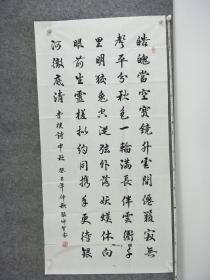 皓魄當空寶鏡升雲間僊籟寂無
聲平分秋色一輪滿長伴雲衢千
里明狡兔空從弦外落妖蟆休向
眼前生靈槎擬約同携手更待銀
河澈底清 李樸詩中秋 癸巳年仲秋